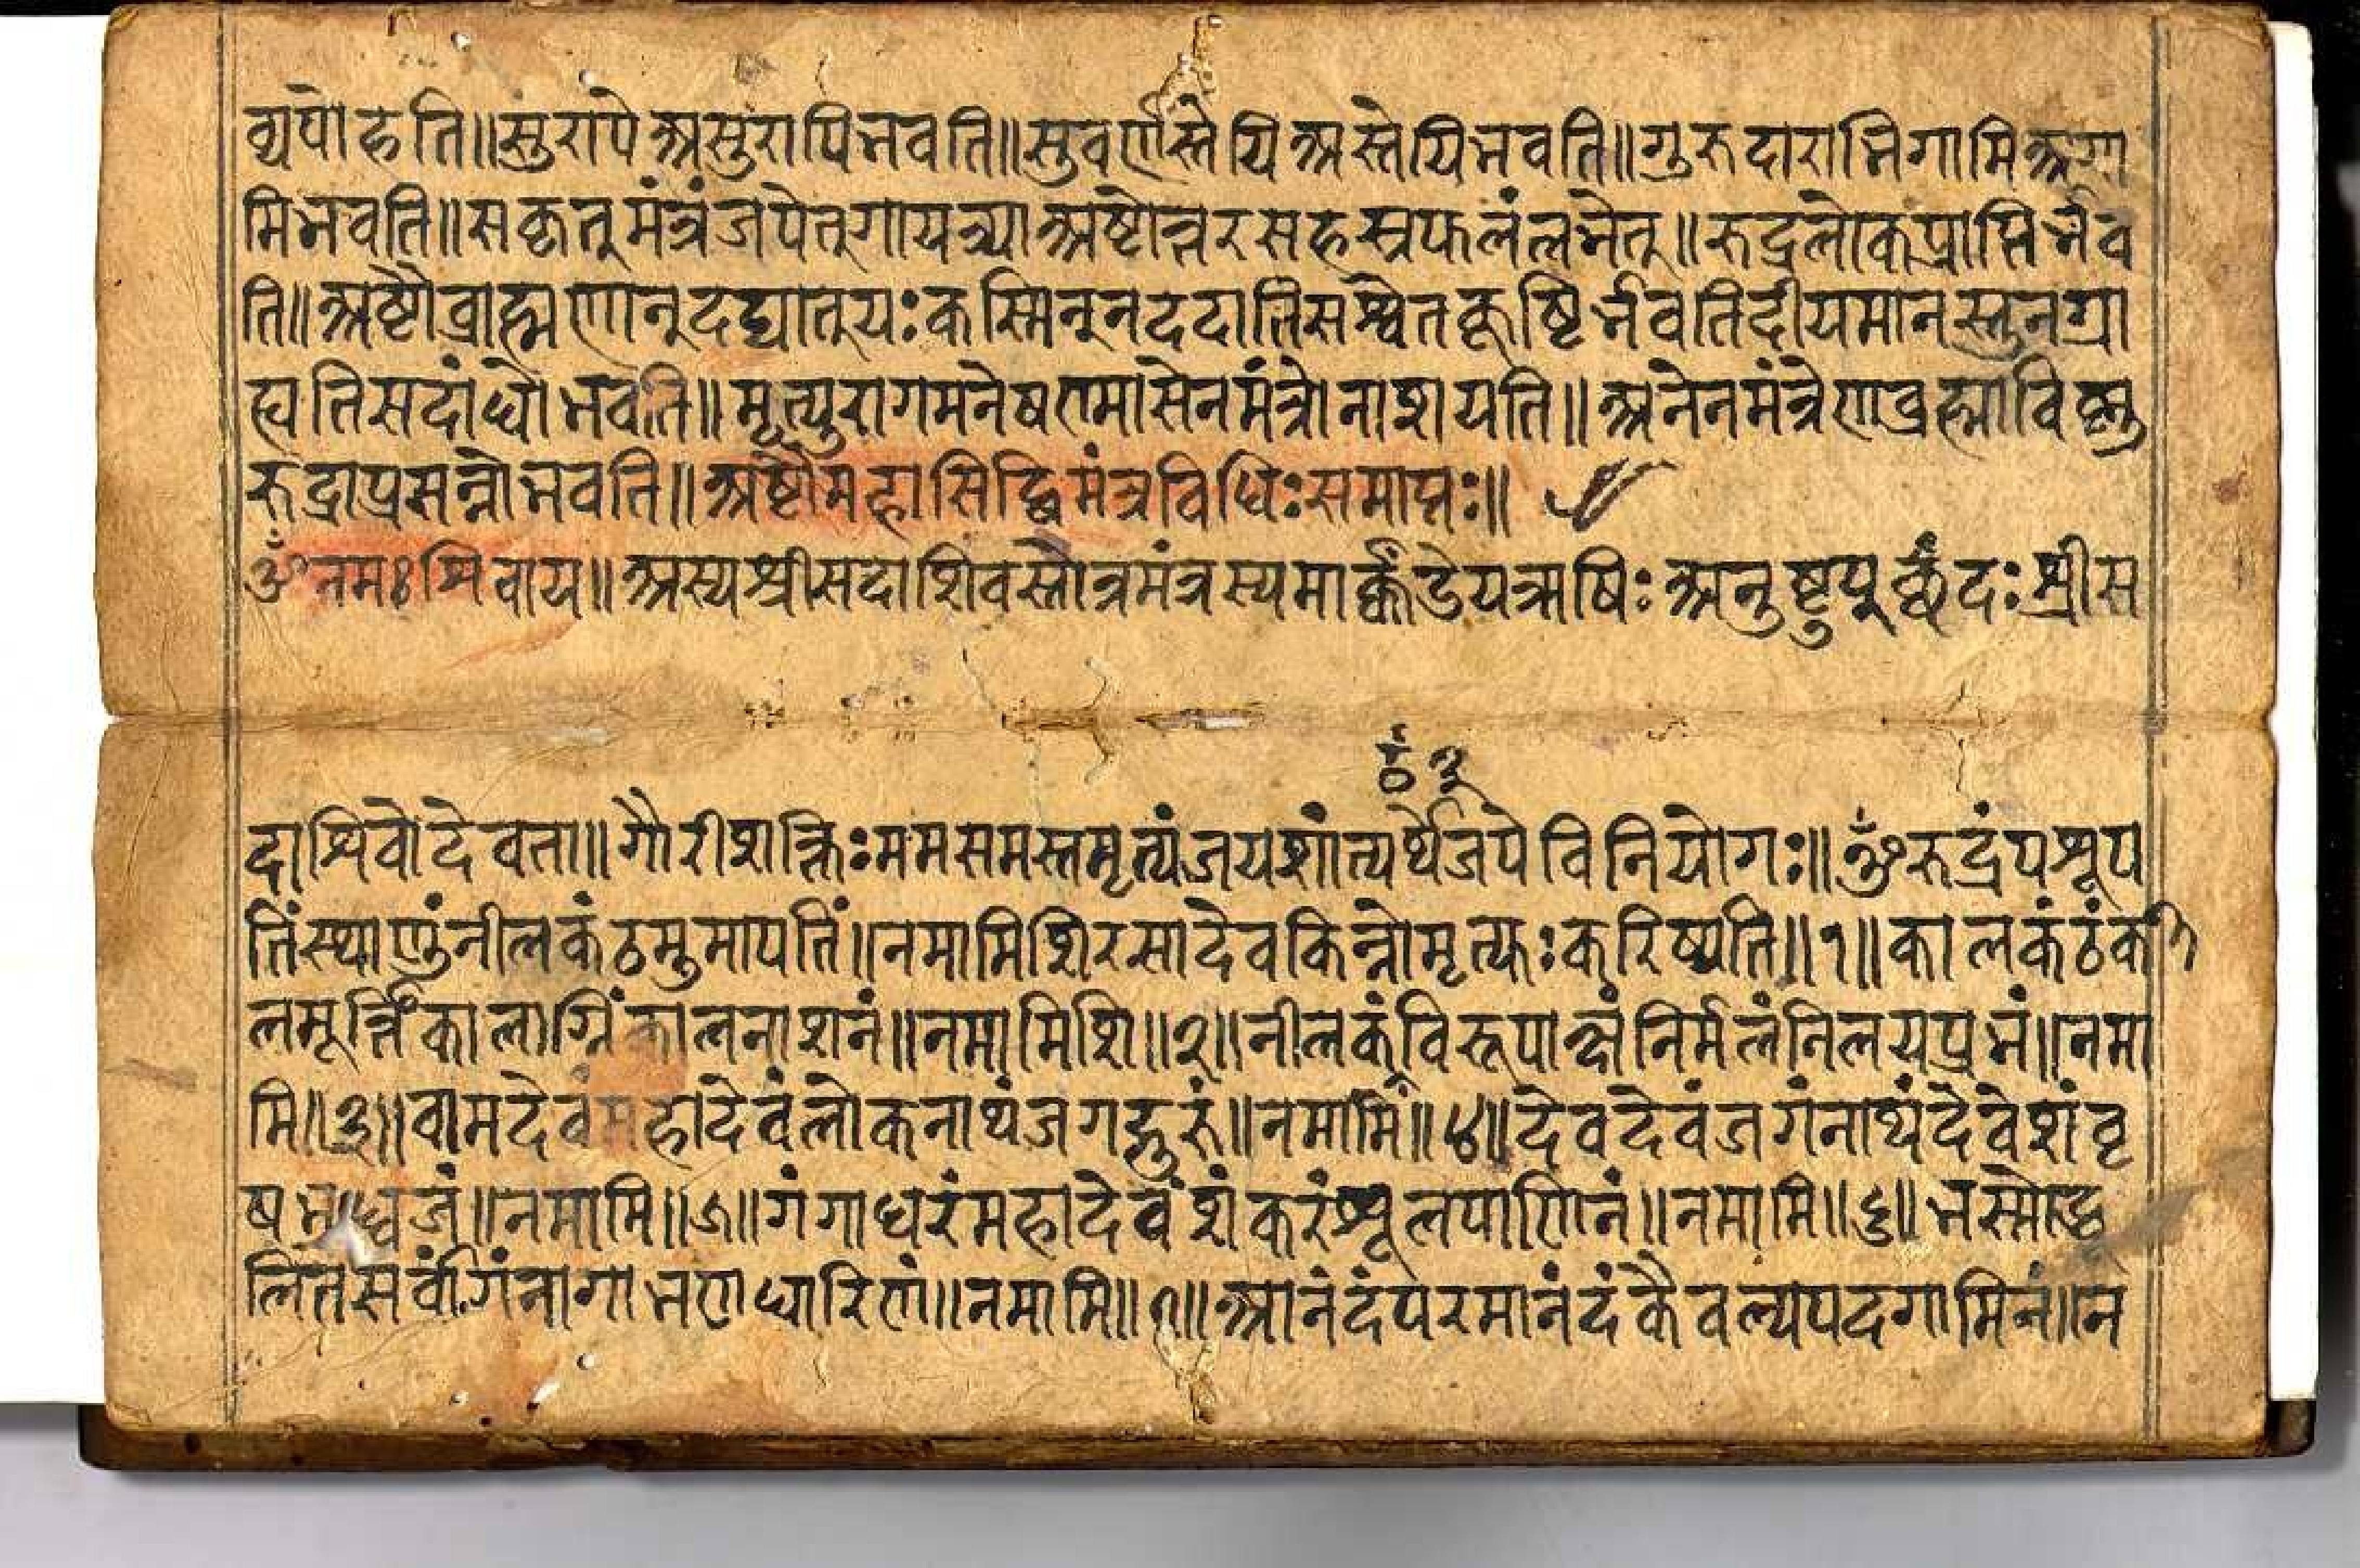 व्यपोहति॥सुरापेअसुरापिभवति॥सुवर्णस्तेयिअस्तेयिभवति॥गुरुदाराभिगामिअगा
मिभवति॥सकृत्तुमंत्रंजपेत्गायत्र्याअष्टोत्तरसहस्रफलंलभेत्॥रुद्रलोकप्राप्तिर्भव
ति॥अष्टौब्राह्मणान्दद्यात्यःकस्मिन्नददातिसश्वेतकूष्टिर्भवतिदीयमानस्तुनग्रा
ह्यतिसदांधोभवति॥मृत्युरागमनेषण्मासेनमंत्रोनाशयति॥अनेनमंत्रेणब्रह्माविष्नु
रुद्राप्रसन्नोभवति॥अष्टौमहासिद्धिमंत्रविधिःसमाप्तः॥
ॐनमःशिवाय॥अस्यश्रीसदाशिवस्तोत्रमंत्रस्यमार्क्कंडेयऋषिःअनुष्टुप्छंदःश्रीस
ठं ३
दाशिवोदेवता॥गौरीशक्तिःममसमस्तमृत्यंजयशांत्यर्थेजपेविनियोगः॥ॐरुद्रंपशूप
तिंस्थाणुंनीलकंठमुमापतिं॥नमामिशिरसादेवकिन्नोमृत्युःकरिष्यति॥१॥कालकंठंक
लमूर्त्तिंकालाग्निंकालनाशनं॥नमामिशि॥२॥नीलकंविरूपाक्षंनिर्मलंनिलयप्रभं॥नमा
मि॥३॥वामदेवंमहादेवंलोकनाथंजगद्गुरुं॥नमामि॥४॥देवदेवंजगंनाथंदेवेशंवृ
षभध्वजं॥नमामि॥५॥गंगाधरंमहादेवंशंकरंशूलपाणिनं॥नमामि॥६॥भस्मोद्धू
लितसर्वांगंनागाभणधारिणं॥नमामि॥७॥आनंदंपरमानंदंकैवल्यपदगामिनं॥न